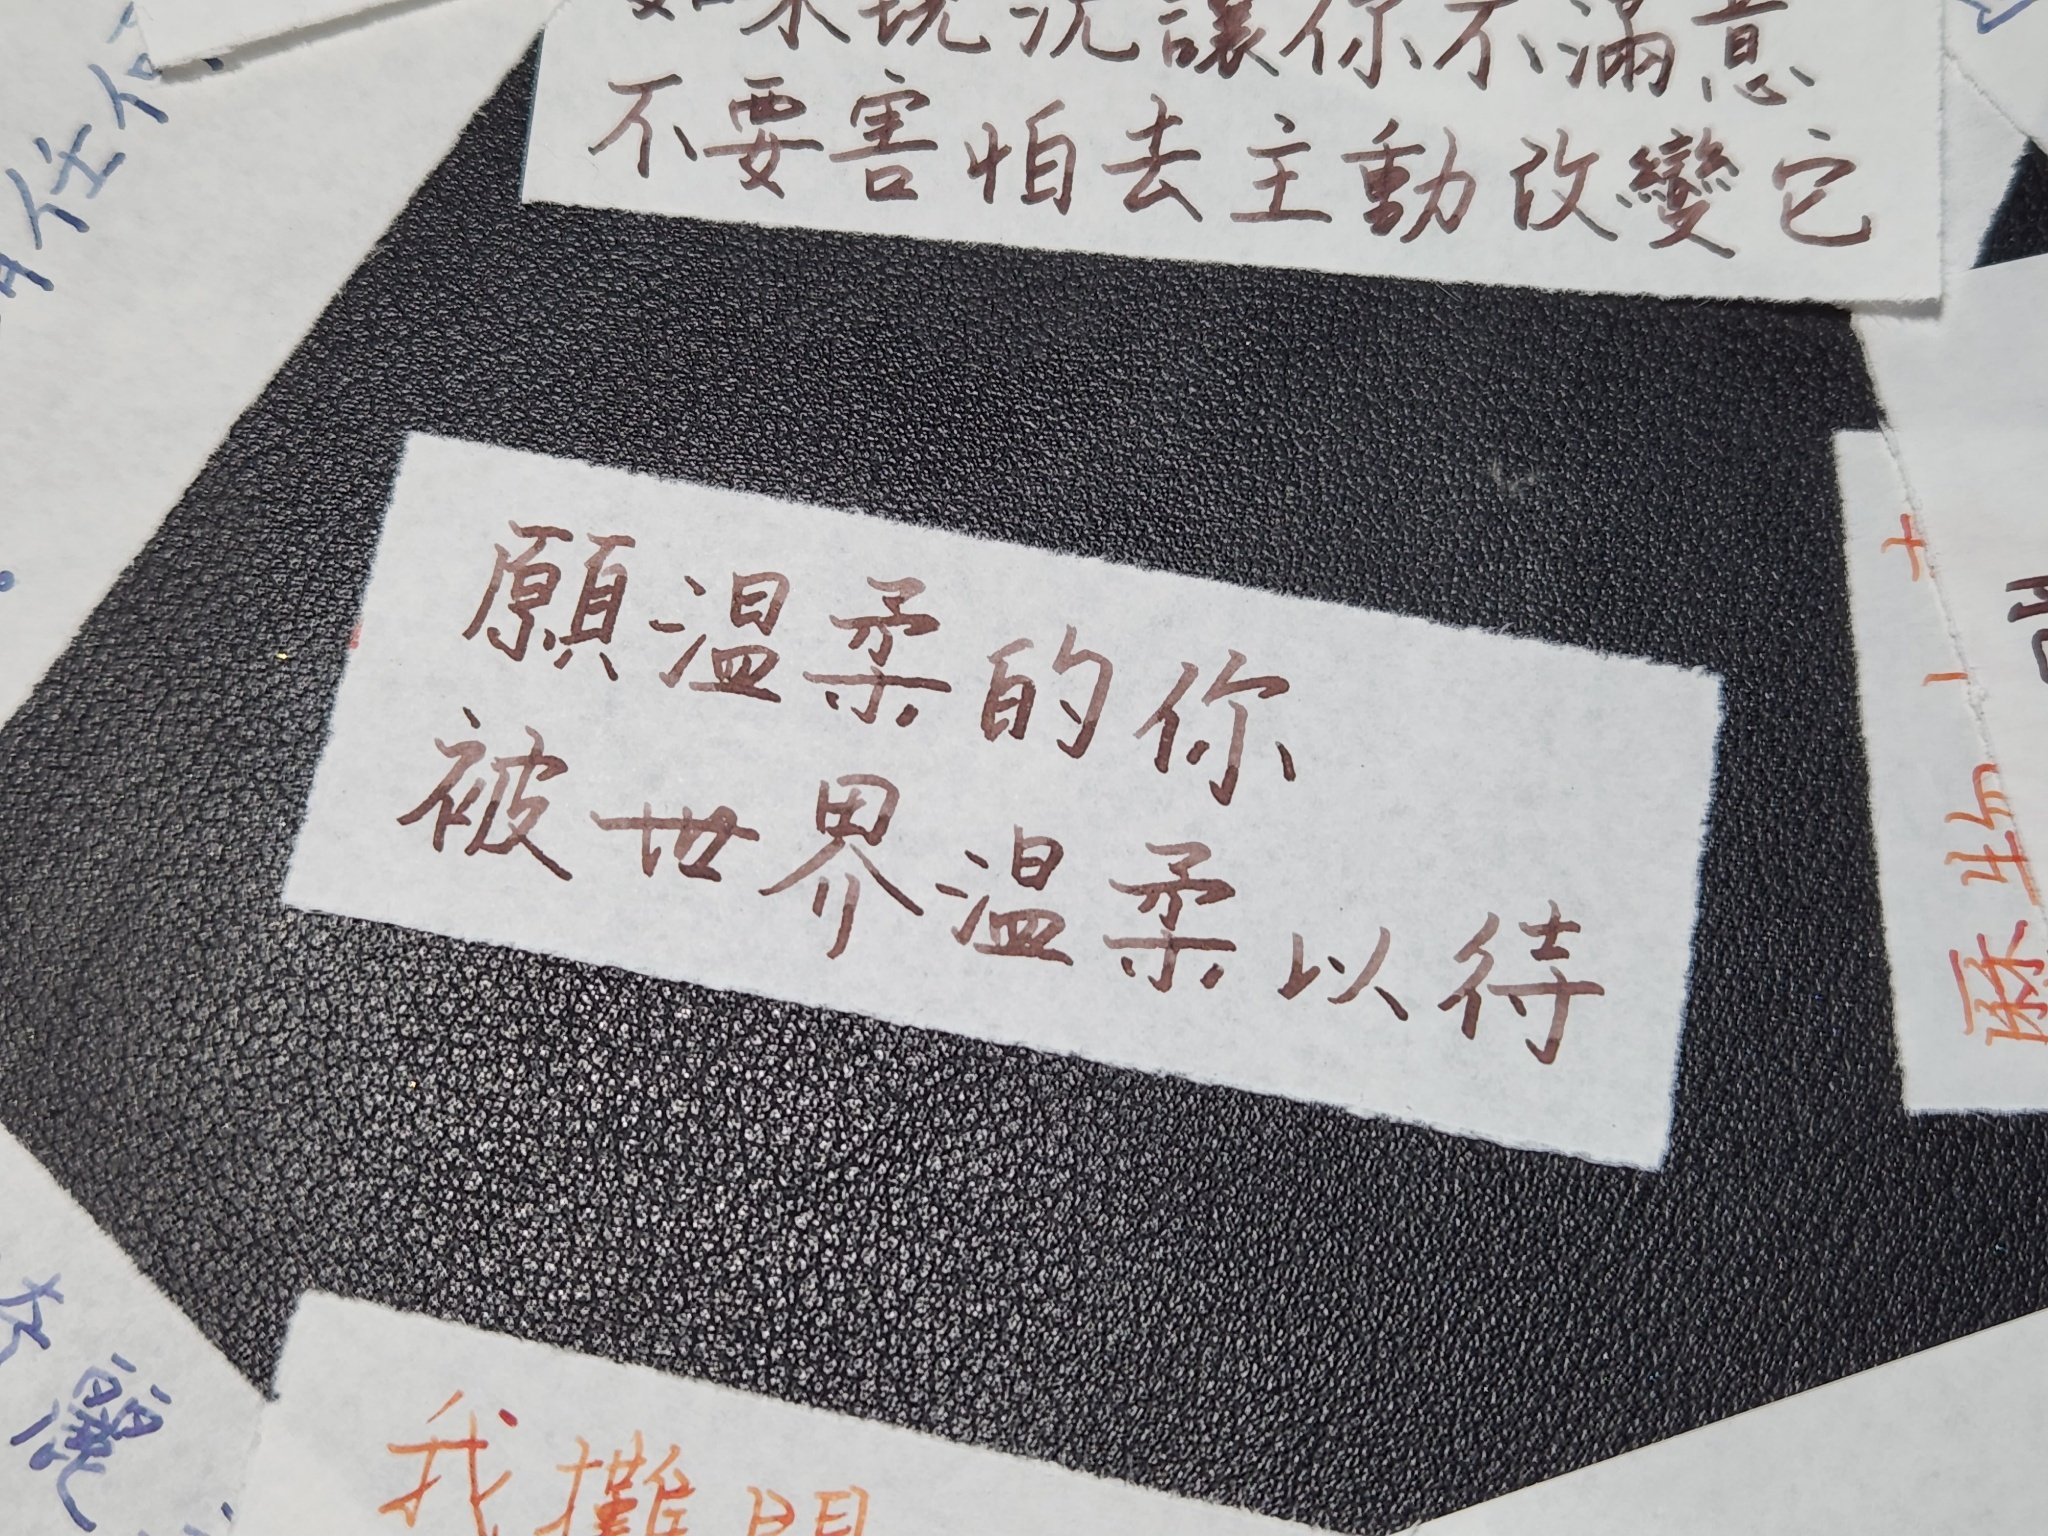 如果現況讓你不滿意
不要害怕去主動改變它
願溫柔的你
被世界溫柔以待
我攤開